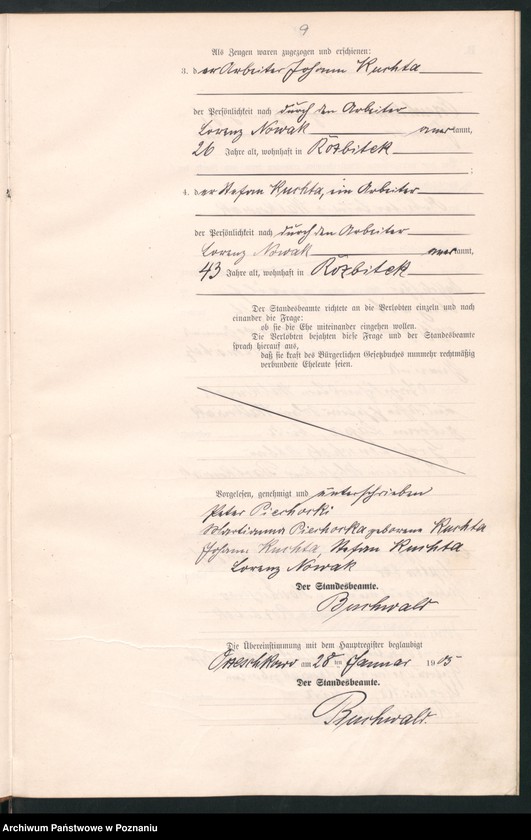 9
Als Zeugen waren zugezogen und erschienen:
3. der Arbeiter Johann Kuchta
der Persönlichkeit nach durch den Arbeiter
Lorenz Nowak anerkannt,
26 Jahre alt, wohnhaft in Rozbitek
;
4. der Stefan Kuchta, ein Arbeiter
der Persönlichkeit nach durch den Arbeiter
Lorenz Nowak anerkannt,
43 Jahre alt, wohnhaft in Rozbitek
Der Standesbeamte richtete an die Verlobten einzeln und nach
einander die Frage:
ob sie die Ehe miteinander eingehen wollen.
Die Verlobten bejahten diese Frage und der Standesbeamte
sprach hierauf aus,
daß sie kraft des Bürgerlichen Gesetzbuches nunmehr rechtmäßig
verbundene Eheleute seien.
Vorgelesen, genehmigt und unterschrieben
Peter Piechocki
Martianna Piechocka geborene Kuchta
Johann Kuchta, Stefan Kuchta
Lorenz Nowak
Der Standesbeamte.
Buchwald
Die Übereinstimmung mit dem Hauptregister beglaubigt
am 28 ten Januar 1905
Der Standesbeamte.
Buchwald.
Archiwum Państwowe w Poznaniu